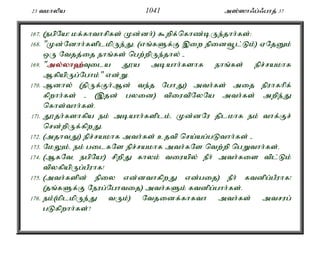 23 வமாலிய 1041 அஸ்ஸாஃப்ஃபாத் 37
167. (நபியே மக்காவாசிகள் முன்னர்) கூறிக்கொண்டிருந்தார்கள்:
168. "முன்னோர்களிடமிருந்து (எங்களுக்கு இறை நினைவூட்டும்) ஏதேனும்
ஒரு வேதத்தை நாங்கள் பெற்றிருந்தால் -
169. "அல்லாஹ்வுடைய தூய அடியார்களாக நாங்கள் நிச்சயமாக
ஆகியிருப்போம்" என்று.
170. ஆனால் (திருக்குர்ஆன் வந்த போது) அவர்கள் அதை நிராகரிக்
கிறார்கள் - (இதன் பலனை) விரைவிலேயே அவர்கள் அறிந்து
கொள்வார்கள்.
171. தூதர்களாகிய நம் அடியார்களிடம், முன்னரே திடமாக நம் வாக்குச்
சென்றிருக்கிறது.
172. (அதாவது) நிச்சயமாக அவர்கள் உதவி செய்யப்படுவார்கள் -
173. மேலும், நம் படைகளே நிச்சயமாக அவர்களே வெற்றி பெறுவார்கள்.
174. (ஆகவே, நபியே!) சிறிது காலம் வரையில் நீர் அவர்களை விட்டும்
விலகியிருப்பீராக!
175. (அவர்களின் நிலை என்னவாகிறது என்பதை) நீர் கவனிப்பீராக!
(தங்களுக்கு நேரப்போவதை) அவர்களும் கவனிப்பார்கள்.
176. நம்(மிடமிருந்து வரும்) வேதனைக்காகவா அவர்கள் அவசரப்
படுகிறார்கள்?